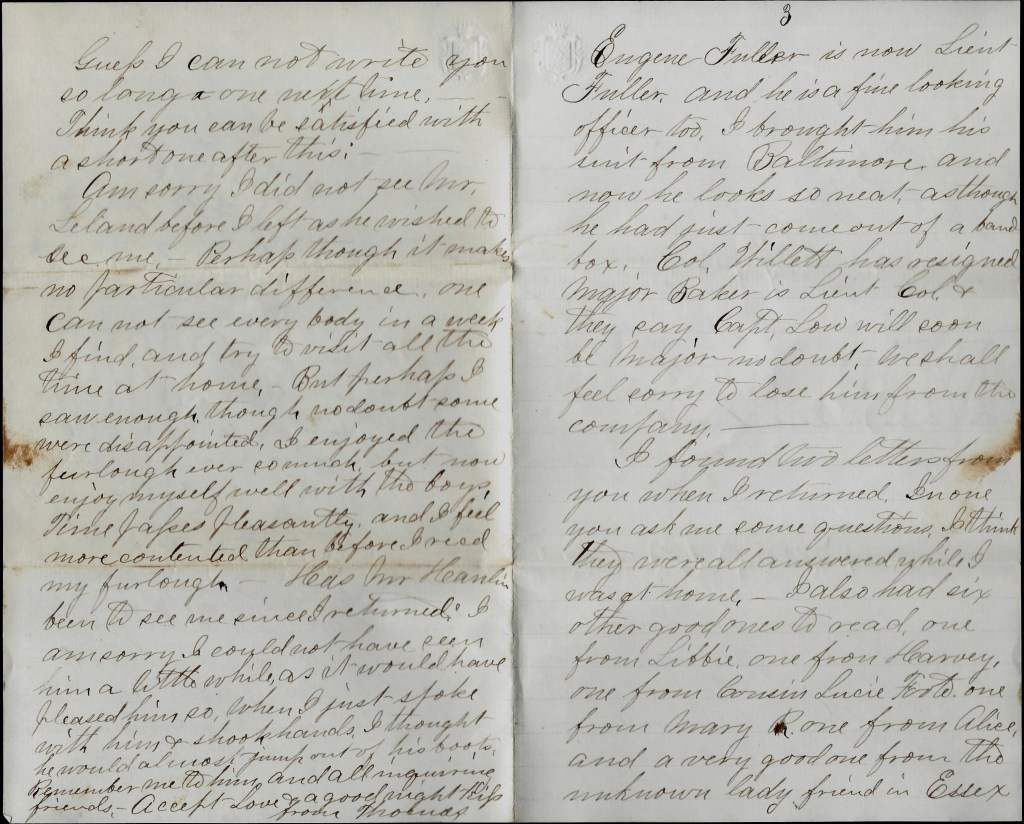 Guess I can not write you
so long a one next time. —
Think you can be satisfied with
a short one after this. —
Am sorry I did not see Mr.
Leland before I left as he wished to
see me. — Perhaps though it makes
no particular difference. one
can not see every body in a week
I find, and try to visit all the
time at home, — But perhaps I
saw enough, though no doubt some
were disappointed, I enjoyed the
furlough ever so much, but now
enjoy myself well with the boys,
Time passes pleasantly, and I feel
more contented than before I recd
my furlough — Has Mr Hamlin
been to see me since I returned? I
am sorry I could not have seen
him a little while, as it would have
pleased him so, When I just spoke
with him & shook hands, I thought
he would almost jump out of his boots,
remember me to him, and all inquiring
friends, — Accept Love & a good night Kiss
from Thomas
3
Eugene Fuller is now Lieut
Fuller, and he is a fine looking
officer too, I brought him his
suit from Baltimore, and
now he looks so neat, as though
he had just come out of a band
box. Col. Willett has resigned
Major Baker is Lieut Col. &
they say Capt. Low will soon
be Major — no doubt, we shall
feel sorry to lose him from the
company. —
I found two letters from
you when I returned. In one
you ask me some questions, I think
they were all answered while I
was at home, — I also had six
other good ones to read, one
from Libbie, one from Harvey,
one from Cousin Lucie, one
from Mary R. one from Alice,
and a very good one from the
unknown lady friend in Essex